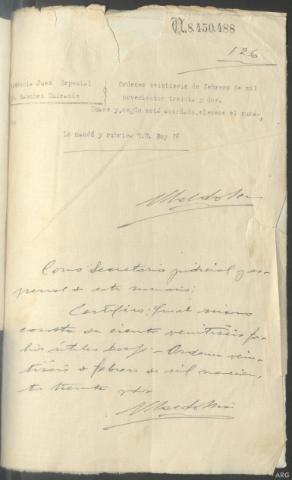 N.8.450.488
126
Juez Especial
Ordenes veintiseis de febrero de mil
novecientos treinta y dos.
y, según está acordado, elevese el suma,
Lo mandó y rubrica S.S. Doy fe
Como Secretario judicial y es-
pecial de este sumario:
Certifico: Que el mismo
consta de ciento veintiséis fo-
lios útiles. Ordenes vein-
tiséis de febrero de mil novecien-
tos treinta y dos
ARG